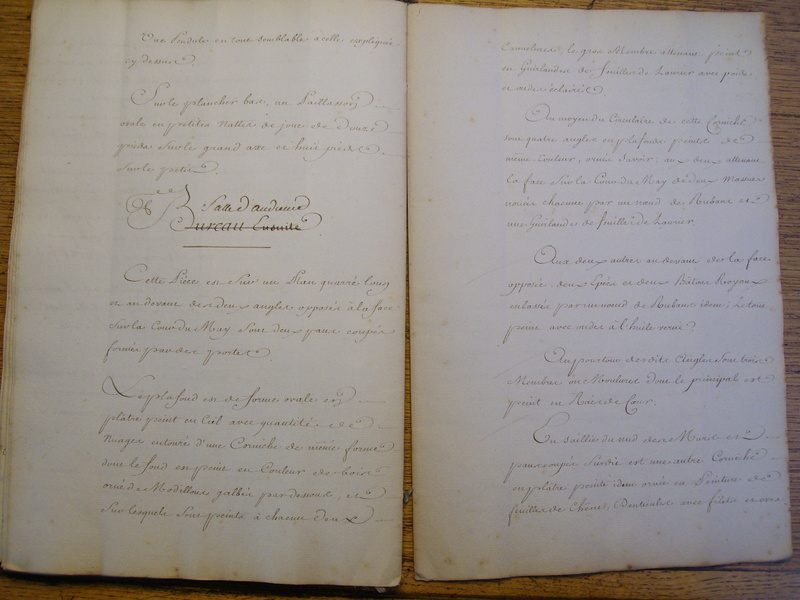 Une Pendule en tout semblable a celle expliquée
cy dessus.
Sur le plancher bas, un Paillasson
ovale en petites nattes de jonc de onze
pieds sur le grand axe et huit pieds
sur le petit.
Salle d'audience
Bureau Ensuite
Cette Piece est sur un Plan quarré long
et au devant des deux angles opposés à la face
sur la Cour du May sont deux pans coupés
formés par des portes
Le plafond est de forme ovale en
platre peint en Ciel avec quantité de
nuages entouré d'une Corniche de même forme
dont le fond est peint en Couleur de bois
orné de Modillons galbés par dessous, et
sur lesquels sont peints à chacun deux
Cannelures, le gros Membre attenant peint
en Guirlandes de feuilles de Laurier avec
Au moyen du Circulaire de cette Corniche
sont quatre angles en plafonds peints de
même Couleur, ornés savoir, aux deux attenant
la face sur la Cour du May de deux Massues
nouées chacune par un nœud de Rubans et
une Guirlande de feuilles de Laurier.
Aux deux autres au devant de la face
opposée, deux Epées et deux Bâtons Royaux
enlassés par un nœud de Rubans idem; Le tout
peint avec ordre à l'huile vernie
Au pourtour des dits Angles sont trois
Membres ou Moulures dont le principal est
peint en Rais de Cœur.
En saillie du nud des Murs et
pans coupés Suivie est une autre Corniche
en platre peinte idem ornée en Peinture de
feuilles de Chene, Denticules avec filets et oves